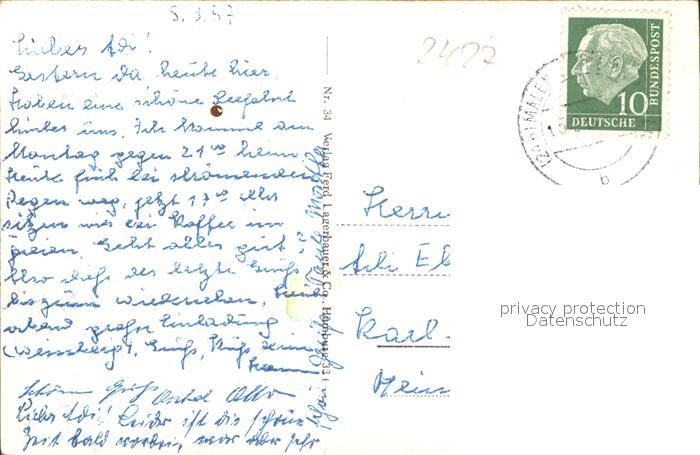 5.3.57
Lieber Adi!
Gestern da heute hier,
haben eine schöne Seefahrt
hinter uns. Ich komme am
Montag gegen 21 00 heim
heute früh bei strömenden
Regen weg, jetzt 17 00 Uhr
sitzen wir bei Kaffee im
freien. Geht alles gut?
Also das der letzte Gruß
bis zum wiedersehen, heute
abend große Einladung
Gruß, Kuß
Schöne Grüße Onkel Otto
Lieber Adi! Leider ist die schöne
Zeit bald vorbei, war aber sehr
schön.
Nr. 34 Verlag Ferd. Lagerbauer & Co., Hamburg 33
2427
10
DEUTSCHE
BUNDESPOST
MALEN
b
Herrn
Adi
Karl-
privacy protection
Datenschutz